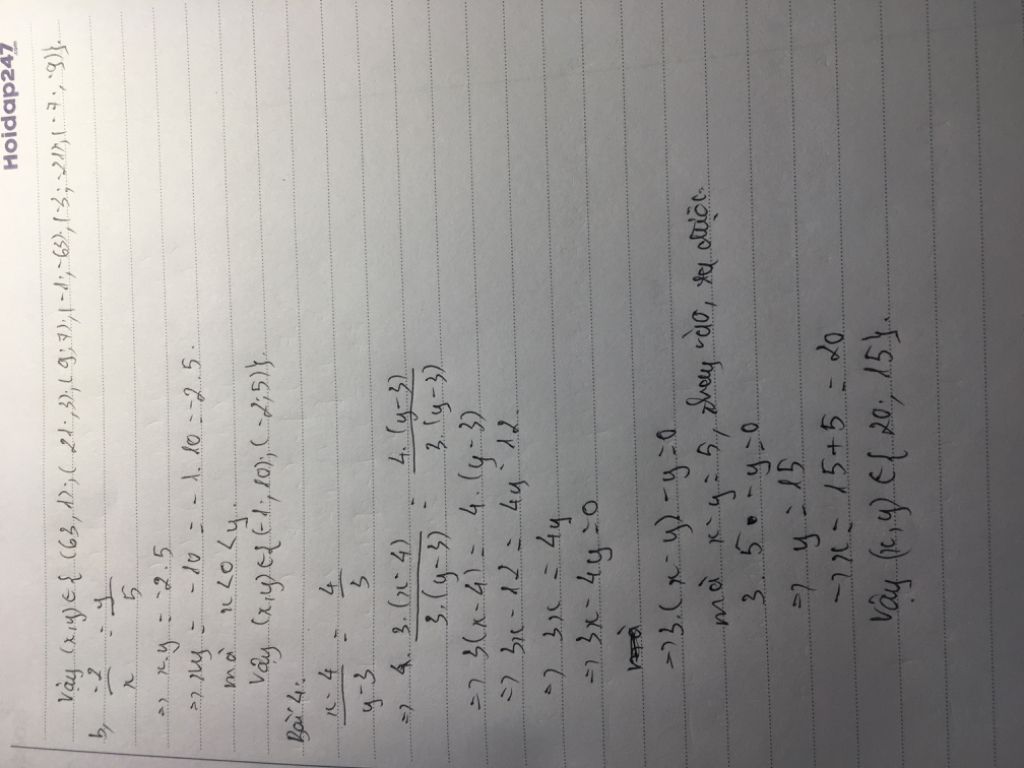 Hoidap247
Vậy (x,y) ∈ { (63, 1), (21, 3), (9; 7), (-1; -63), (-3; -21), (-7; -9)}.
b, -2/x = y/5
=> xy = -2.5
=> xy = -10 = -1.10 = -2.5.
mà x<0<y.
Vậy (x,y) ∈ {(-1, 10), (-2; 5)}.
Bài 4:
x-4/y-3 = 4/3
=> 3.(x-4)/3.(y-3) = 4.(y-3)/3.(y-3)
=> 3(x-4) = 4.(y-3)
=> 3x-12 = 4y-12
=> 3x = 4y
=> 3x-4y=0
=> 3.(x-y)-y=0
mà x-y=5, thay vào, ta được.
3.5-y=0
=> y=15
-> x = 15+5 = 20
Vậy (x,y) ∈ { 20; 15}.